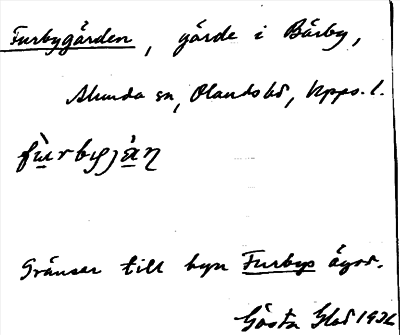 Furbygärden, gärde i Bärby,
Alunda sn, Olands hd, Upps. l.
fɯ̀rbyjæ̀ṇ
Gränser till byn Furbys ägor.
Gösta Glad 1926